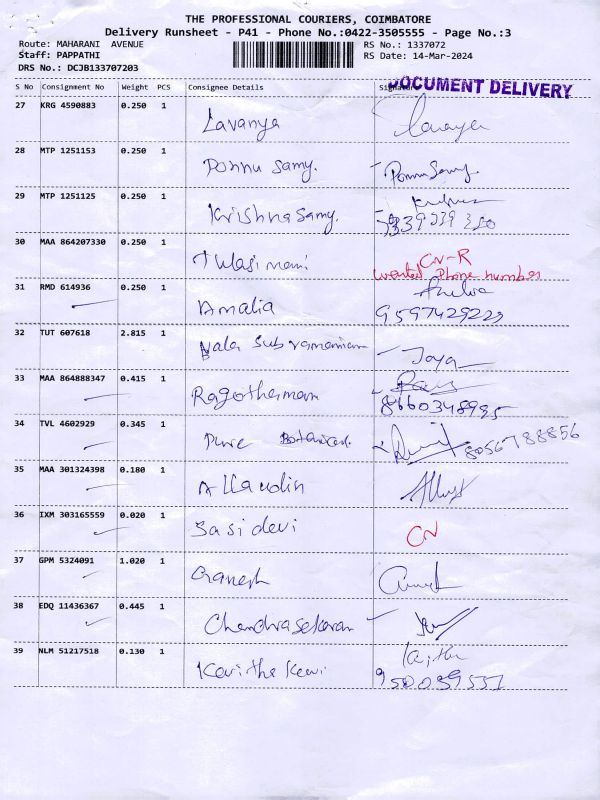 THE PROFESSIONAL COURIERS, COIMBATORE
Delivery Runsheet - P41 - Phone No.:0422-3505555 - Page No.:3
Route: MAHARANI AVENUE
RS No.: 1337072
Staff: PAPPATHI
RS Date: 14-Mar-2024
DRS No.: DCJB133707203
DOCUMENT DELIVERY
S No Consignment No Weight PCS Consignee Details
27 KRG 4590883 0.250 1
Lavanya
28 MTP 1251153 0.250 1
Ponnu Samy.
Ponnu Samy
29 MTP 1251125 0.250 1
Krishnasamy.
30 MAA 864207330 0.250 1
Tulasi mani
CN-R
wanted Phone number
31 RMD 614936 0.250 1
Amalia
9597429223
32 TUT 607618 2.815 1
Bala Subramaniam
Jaya
33 MAA 864888347 0.415 1
Ragothaman
8660348995
34 TVL 4602929 0.345 1
Pure Botanical.
8056788856
35 MAA 301324398 0.180 1
Allaudin
36 IXM 303165559 0.020 1
Sasi devi
CN
37 GPM 5324091 1.020 1
Ganesh
38 EDQ 11436367 0.445 1
Chandrasekaran
39 NLM 51217518 0.130 1
Kavitha